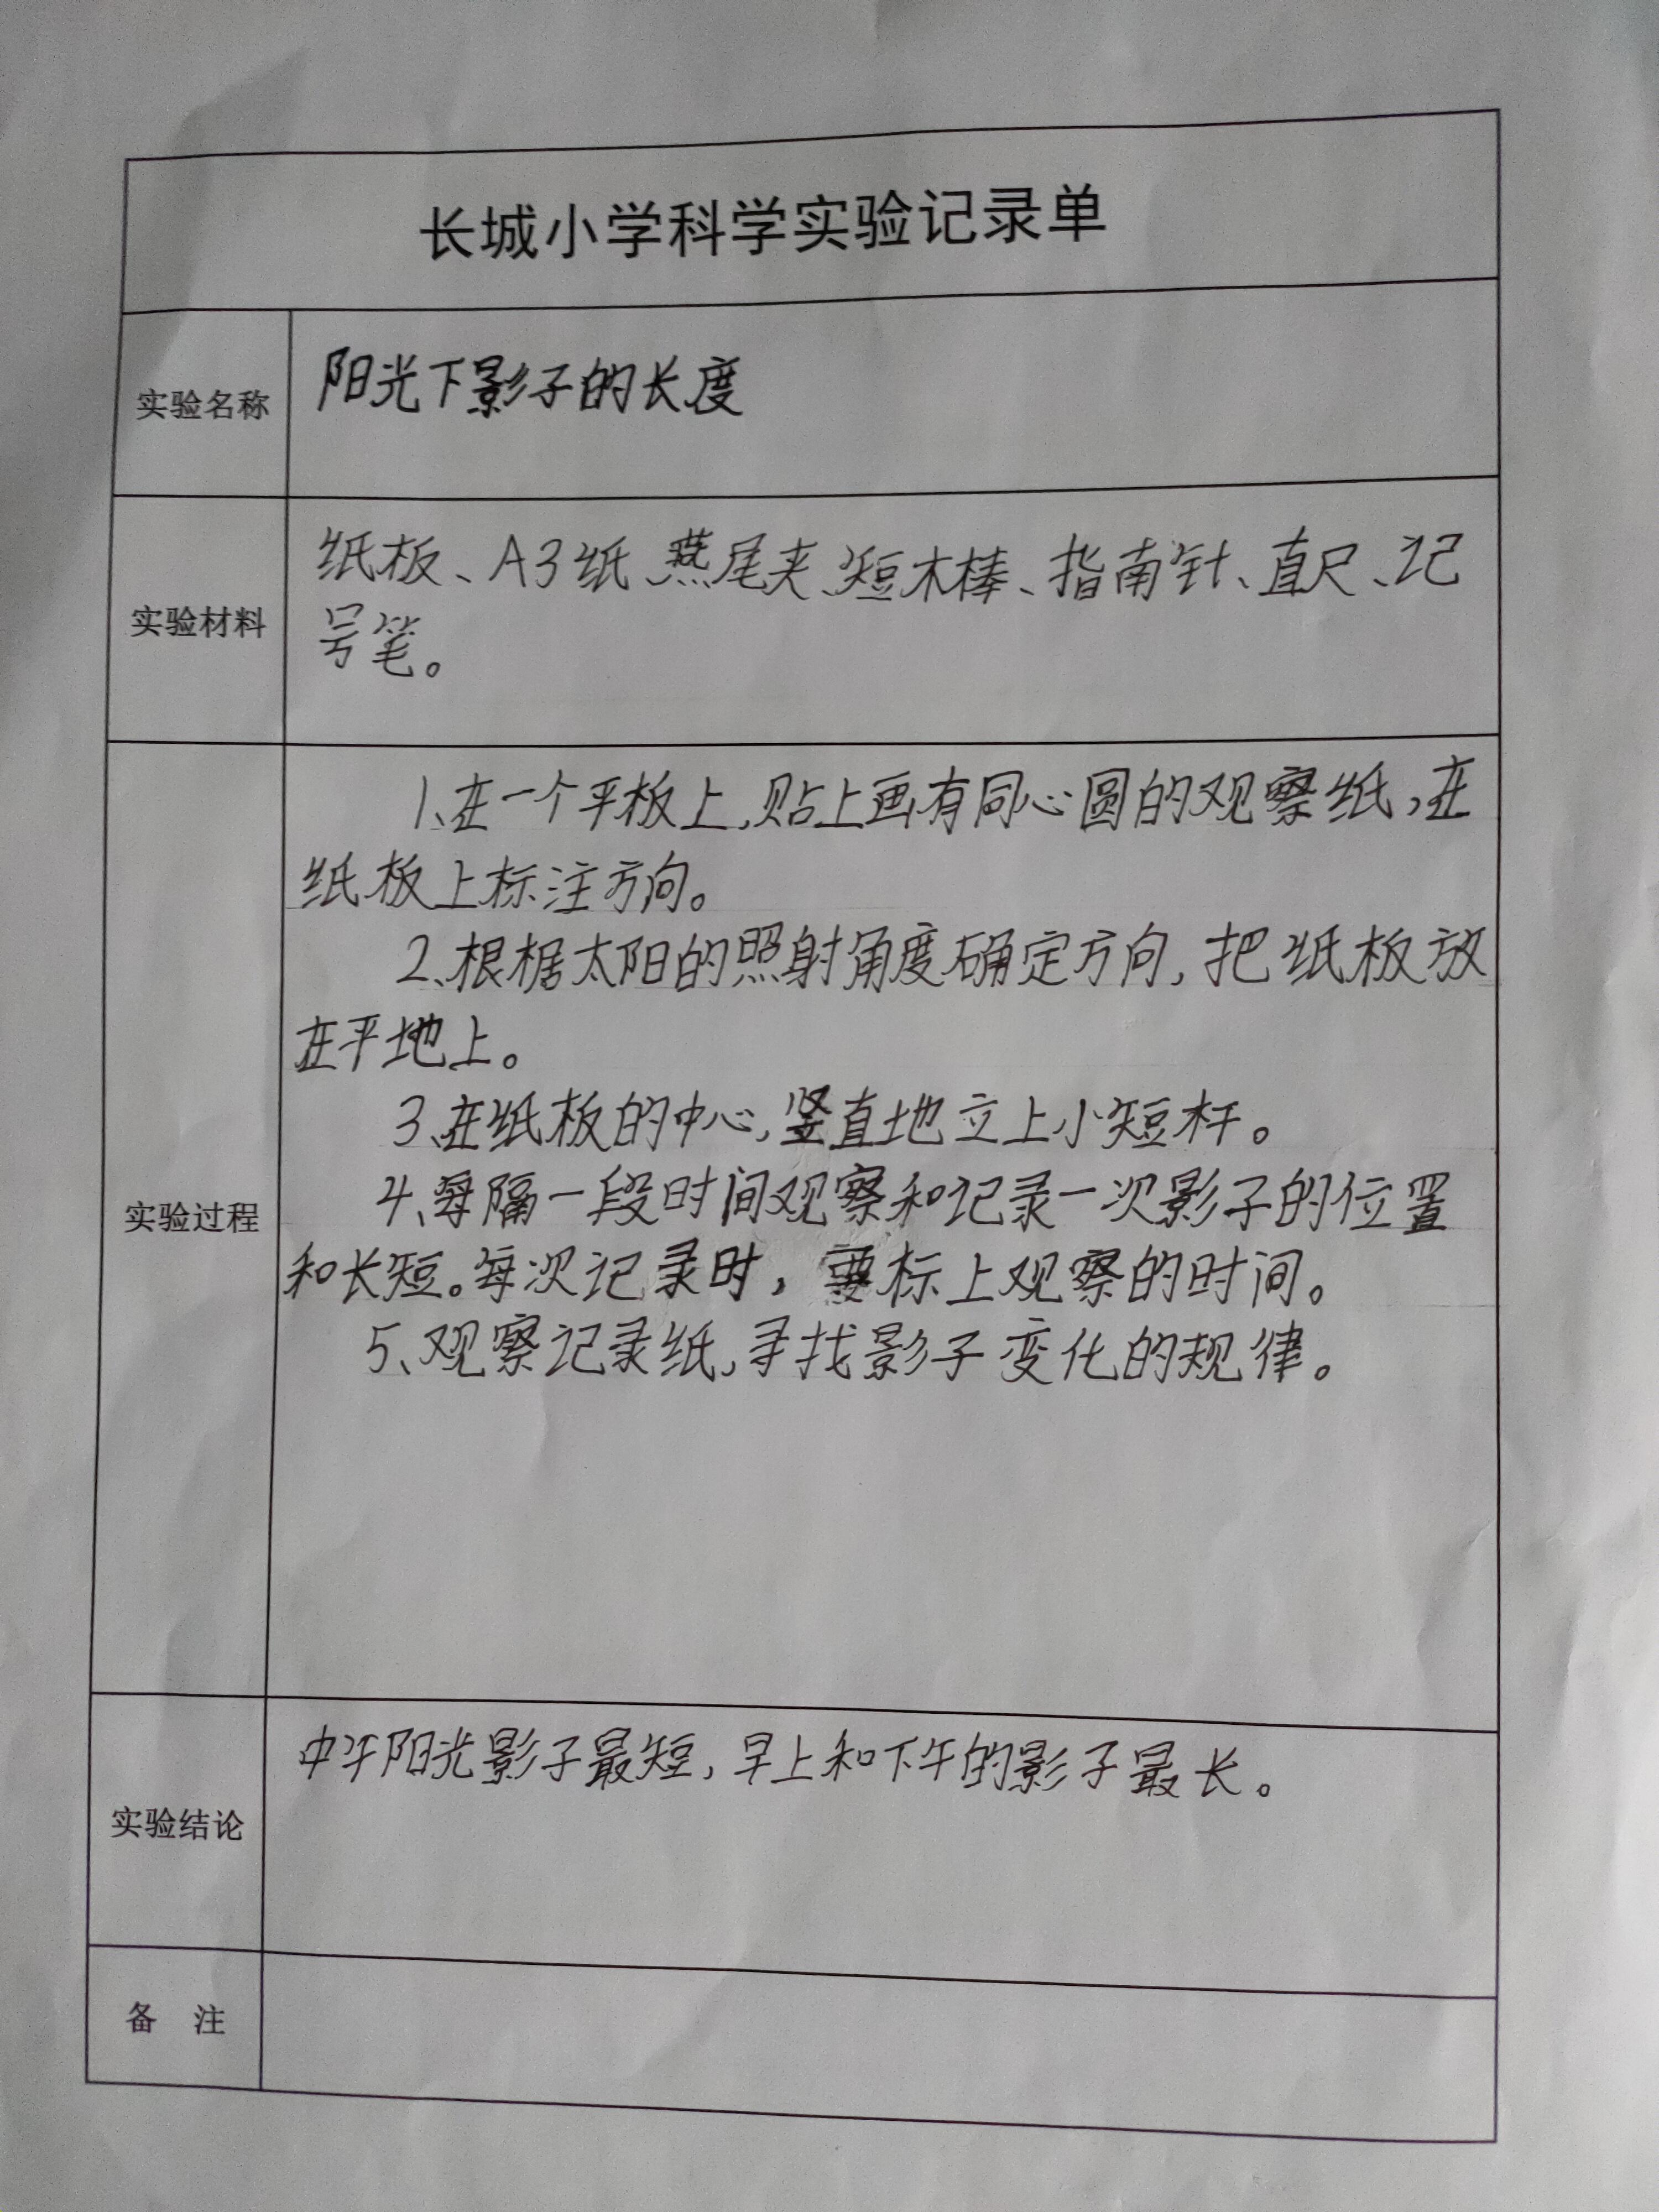 长城小学科学实验记录单
实验名称
阳光下影子的长度
实验材料
纸板、A3纸、燕尾夹、短木棒、指南针、直尺、记
号笔。
实验过程
1、在一个平板上,贴上画有同心圆的观察纸,在
纸板上标注方向。
2、根据太阳的照射角度确定方向,把纸板放
在平地上。
3、在纸板的中心,竖直地立上小短杆。
4、每隔一段时间观察和记录一次影子的位置
和长短。每次记录时,要标上观察的时间。
5、观察记录纸,寻找影子变化的规律。
实验结论
中午阳光影子最短,早上和下午的影子最长。
备 注